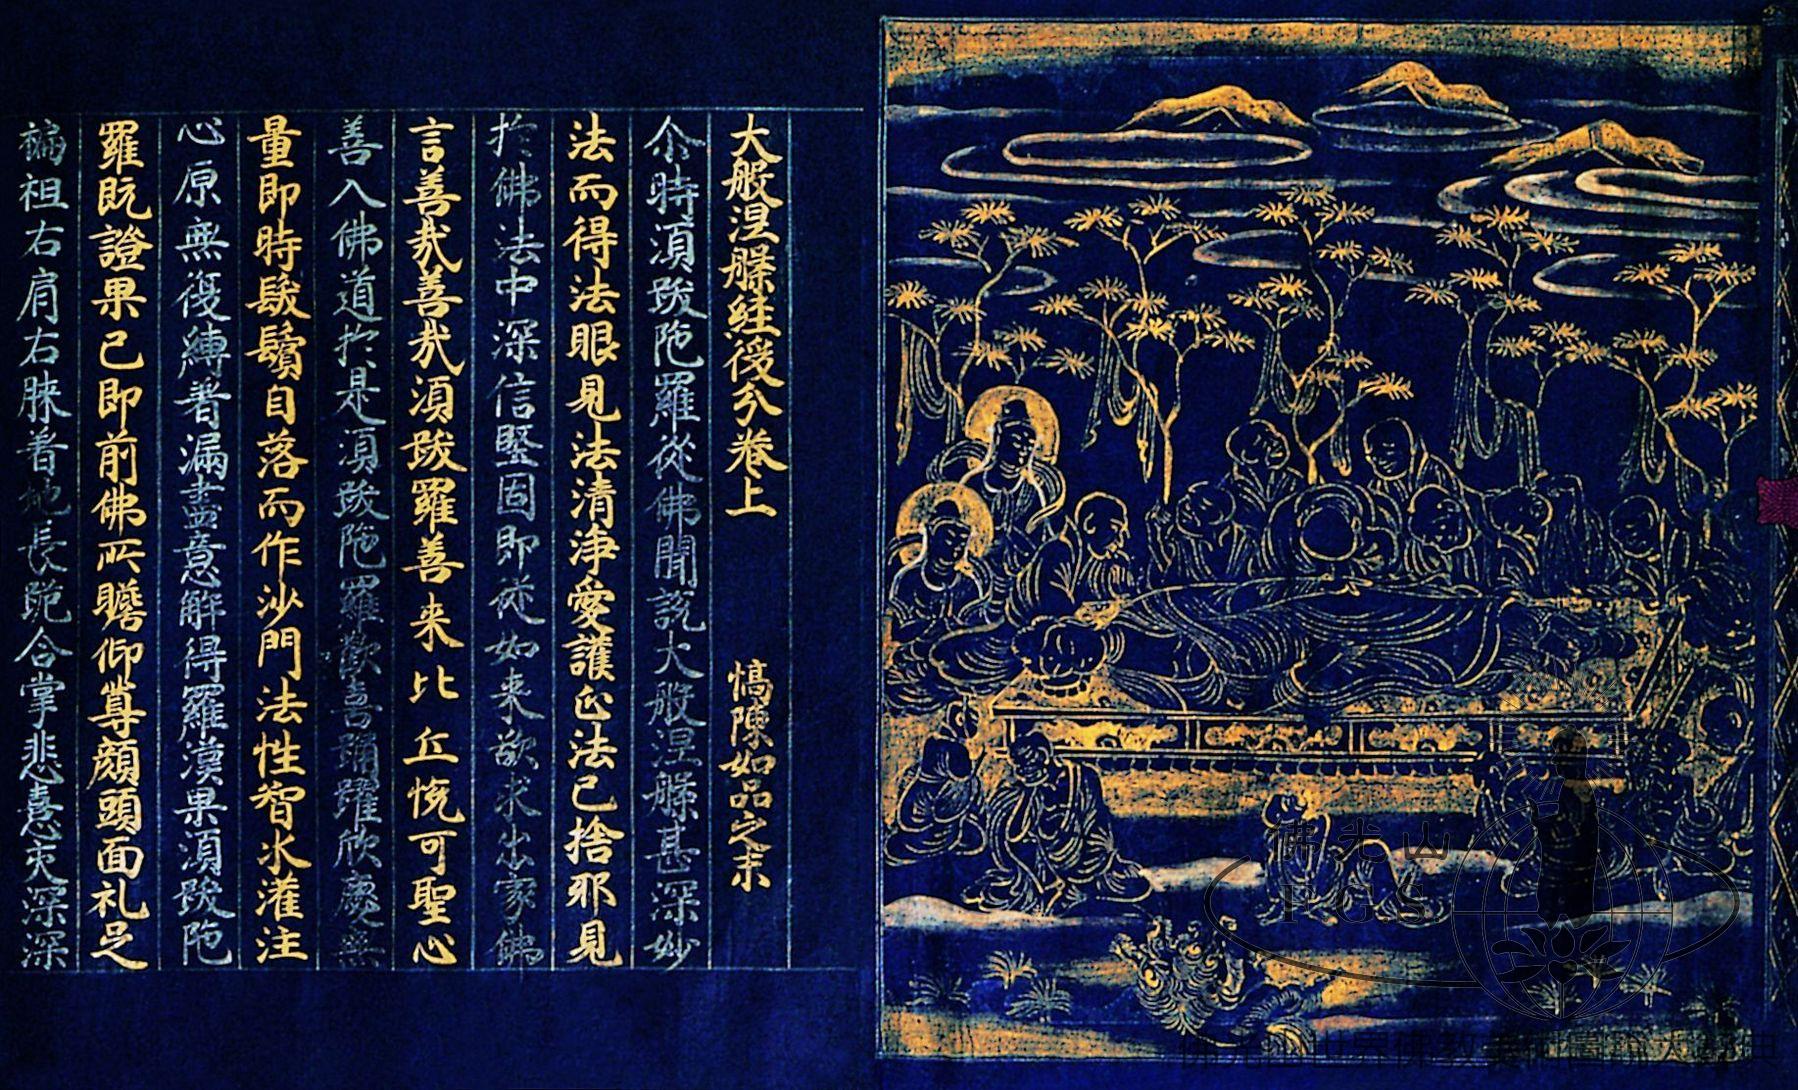 大般涅槃經後分卷上　憍陳如品之末
尒時須跋陀羅從佛聞說大般涅槃甚深妙
法而得法眼見法清淨愛護正法已捨邪見
於佛法中深信堅固即從如来欲求出家佛
言善哉善哉須跋羅善来比丘恱可聖心
善入佛道於是須跋陀羅歡喜踊躍欣慶無
量即時鬚鬢自落而作沙門法性智水灌注
心原無復縛著漏盡意解得羅漢果須跋陀
羅既證果已即前佛所瞻仰尊顔頭面礼足
褊袒右肩右膝著地長跪合掌悲喜交深深
佛光山
FGS
佛光山世界佛教美術圖說大辭典